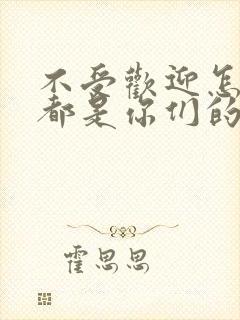 不受歡迎怎
都是你们的
霍思思